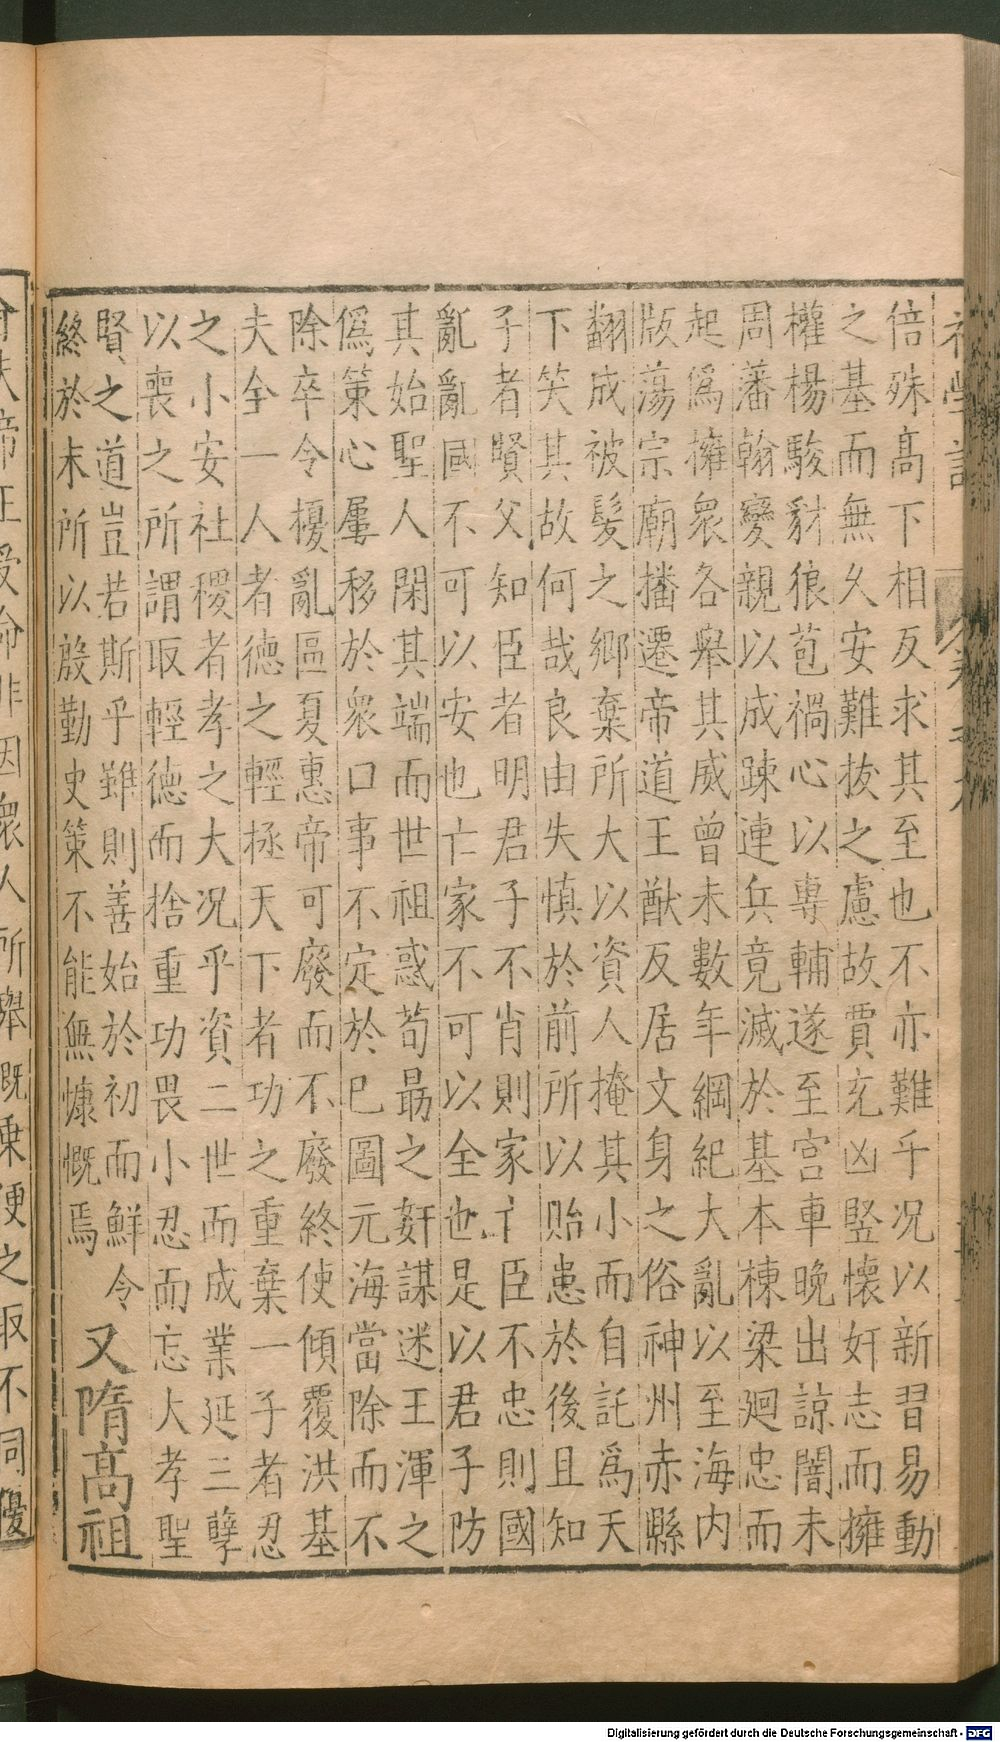 初學記 卷第九
倍殊高下相反求其至也不亦難乎况以新習易動
之基而無久安難拔之慮故賈充凶豎懷奸志而擁
權楊駿豺狼苞禍心以專輔遂至宮車晚出諒闇未
周藩翰變親以成踈連兵竟滅於基本棟梁廻忠而
起爲擁眾各舉其威曾未數年綱紀大亂以至海內
版蕩宗廟播遷帝道王猷反居文身之俗神州赤縣
翻成被髮之鄉棄所大以資人掩其小而自託爲天
下笑其故何哉良由失慎於前所以貽患於後且知
子者賢父知臣者明君子不肖則家亡臣不忠則國
亂亂國不可以安也亡家不可以全也是以君子防
其始聖人閑其端而世祖惑荀勗之奸謀迷王渾之
僞策心屢移於眾口事不定於已圖元海當除而不
除卒令擾亂區夏惠帝可廢而不廢終使傾覆洪基
夫全一人者德之輕拯天下者功之重棄一子者忍
之小安社稷者孝之大况乎資二世而成業延三孽
以喪之所謂取輕德而捨重功畏小忍而忘大孝聖
賢之道豈若斯乎雖則善始於初而鮮令
終於末所以慇勤史策不能無慷慨焉
又隋高祖
Digitalisierung gefördert durch die Deutsche Forschungsgemeinschaft - DFG